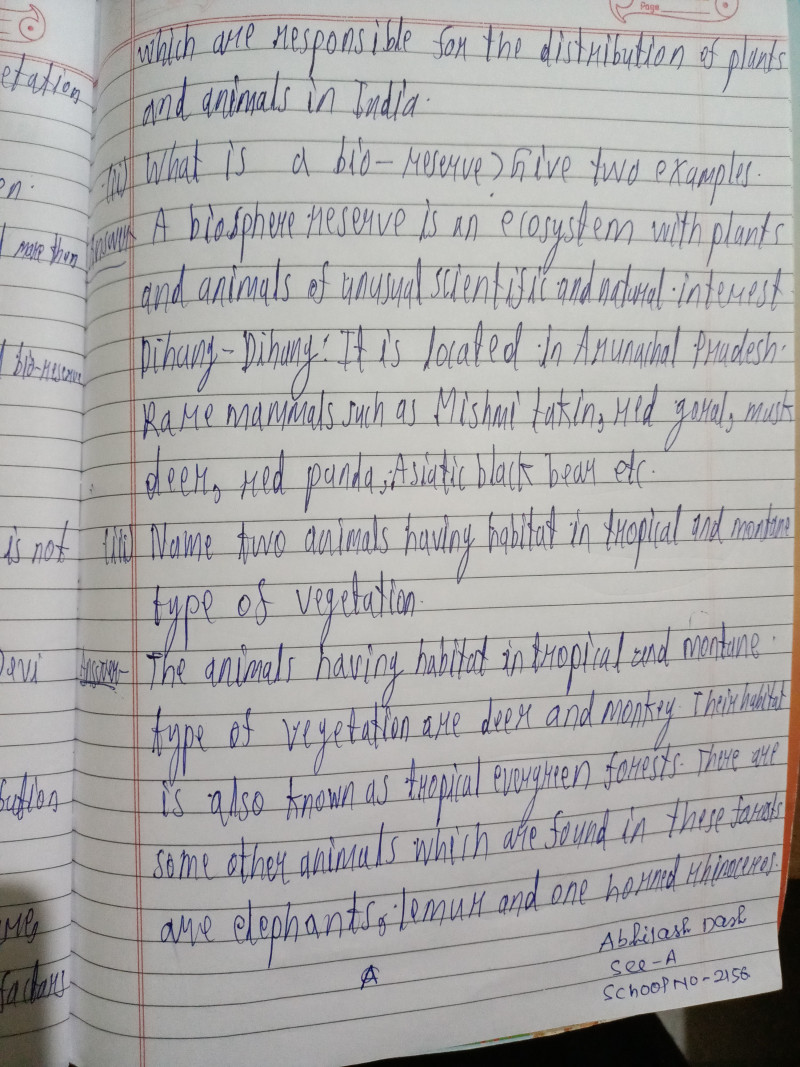 Page
which are responsible for the distribution of plants
and animals in India.
(ii) What is a bio-reserve? Give two examples.
Answer A biosphere reserve is an ecosystem with plants
and animals of unusual scientific and natural interest
Dihang-Dihang: It is located in Arunachal Pradesh.
Rare mammals such as Mishmi takin, red goral, musk
deer, red panda, Asiatic black bear etc.
(iii) Name two animals having habitat in tropical and montane
type of vegetation.
Answer- The animals having habitat in tropical and montane.
type of vegetation are deer and monkey. Their habitat
is also known as tropical evergreen forests. There are
some other animals which are found in these forests
are elephants, lemur and one horned rhinoceros.
Abhilash Dash
Sec-A
School No-2158
etation
en.
more than
bio-reserve
is not
Devi
bution
factors